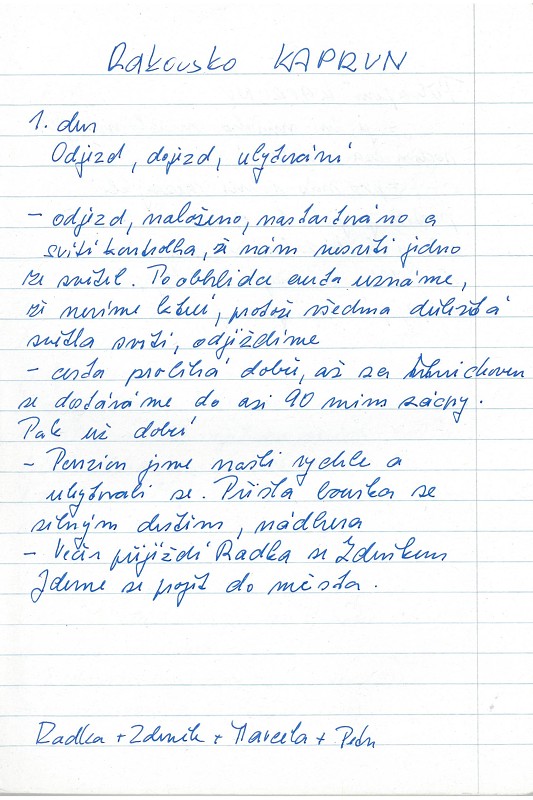 Rakousko KAPRUN
1. den
Odjezd, dojezd, ubytování
- odjezd, naloženo, nastartováno a
svítí kontrolka, že nám nesvítí jedno
ze světel. Po obhlídce auta uznáme,
že nevíme které, protože všechna důležitá
světla svítí, odjíždíme
- cesta probíhá dobře, až za Mnichovem
se dostáváme do asi 90 min zácpy.
Pak už dobré
- Penzion jsme našli rychle a
ubytovali se. Přišla bouřka se
silným deštěm, nádhera
- Večer přijíždí Radka se Zdeňkem
Jdeme se projít do města.
Radka + Zdeněk + Marcela + Petr